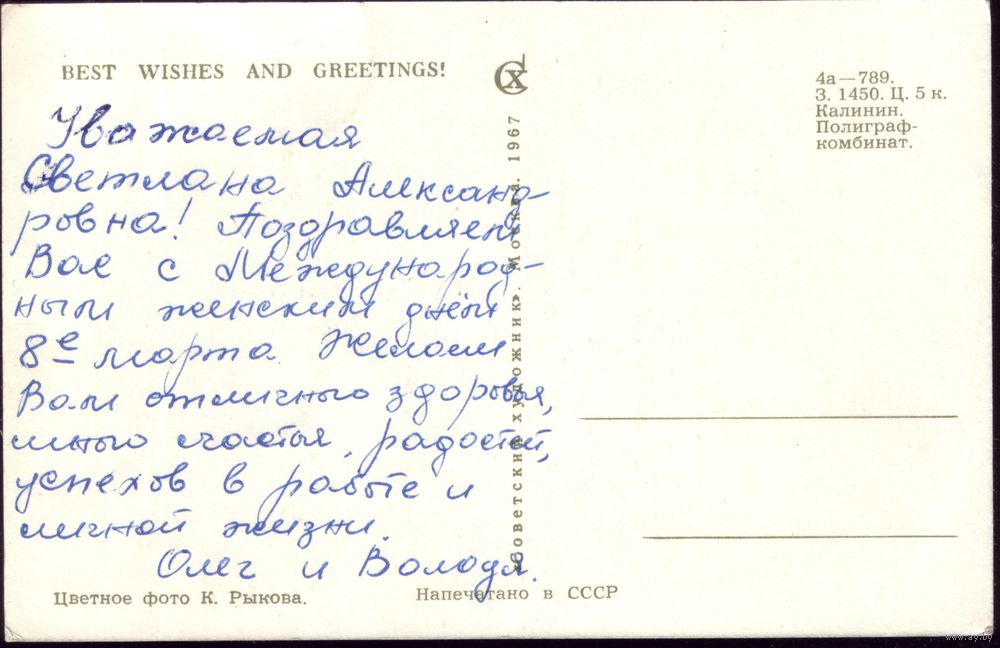 BEST WISHES AND GREETINGS!
СХ
4а—789.
З. 1450. Ц. 5 к.
Калинин.
Полиграф-
комбинат.
Уважаемая
Светлана Александ-
ровна! Поздравляем
Вас с Международ-
ным женским днём
8е марта. Желаем
Вам отличного здоровья,
много счастья, радостей,
успехов в работе и
личной жизни.
Олег и Володя.
«Советский художник». Москва. 1967
Цветное фото К. Рыкова.
Напечатано в СССР
www.ay.by